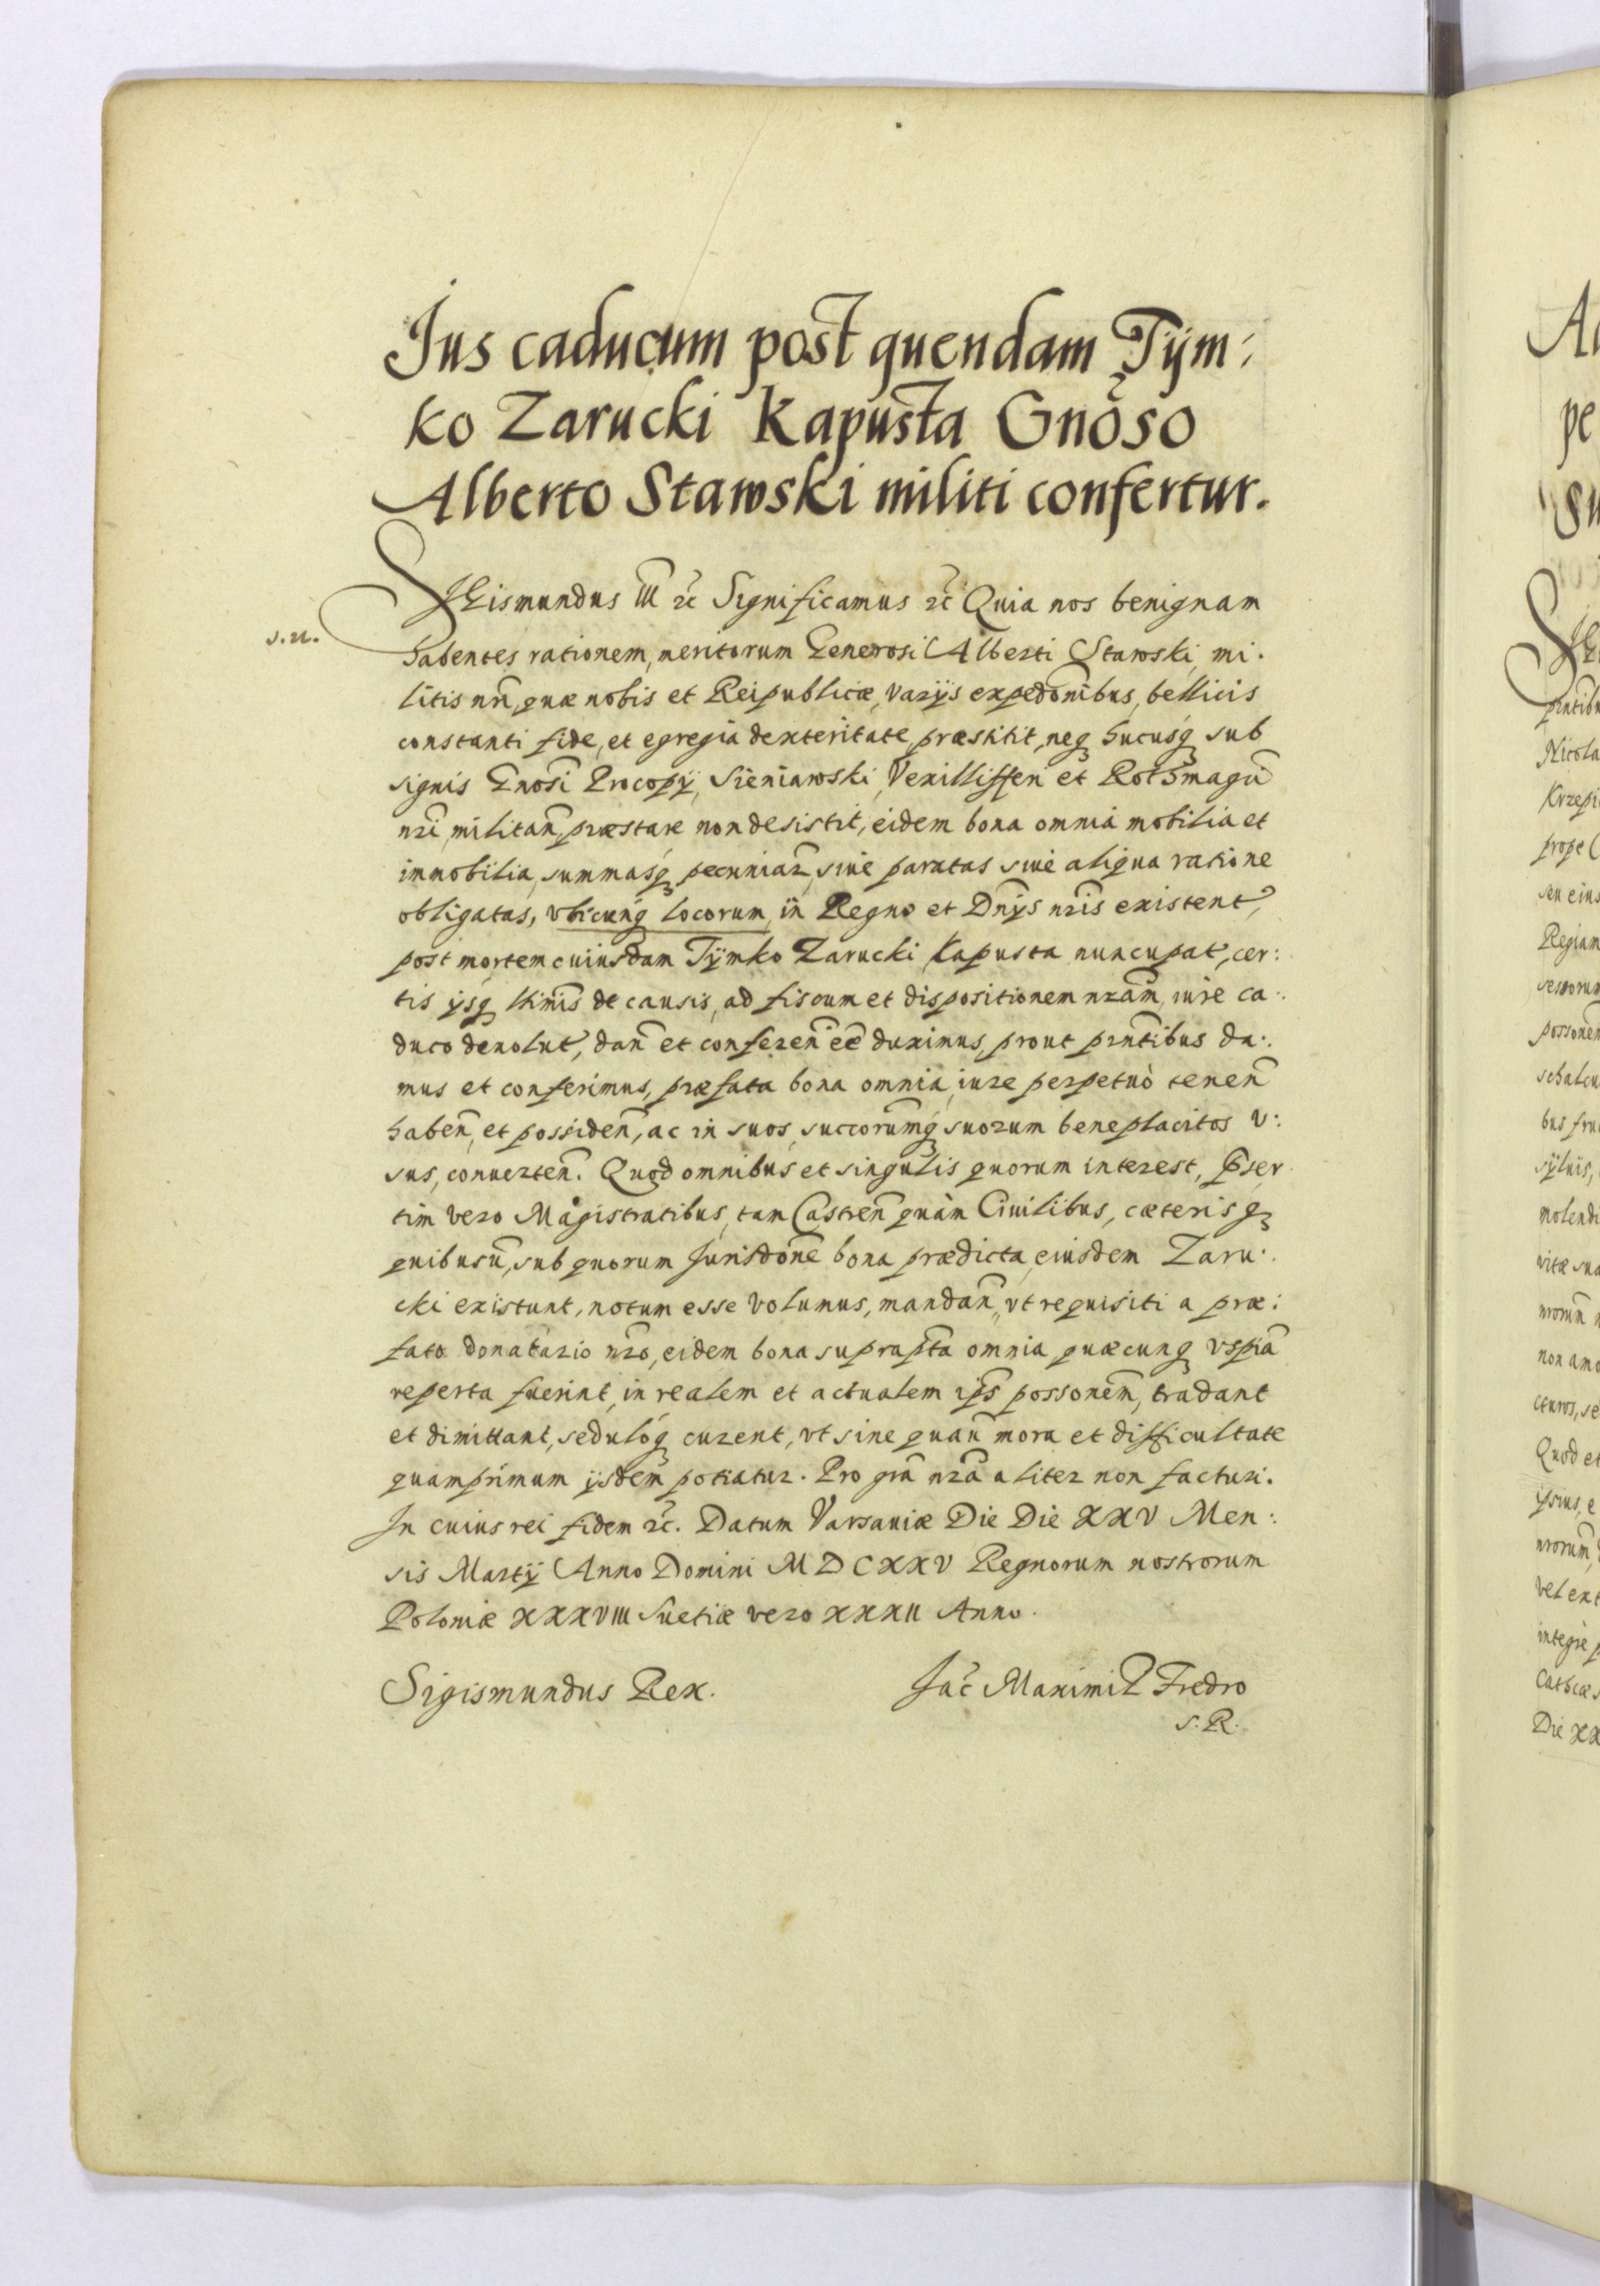 Jus caducum post quendam Tÿm:
ko Zarucki Kapusta Gnoso
Alberto Stawski militi confertur.
SIGismundus III etc Significamus etc Quia nos benignam
s. u.
habentes rationem, meritorum Generosi Alberti Stawski, mi.
litis nri, quæ nobis et Reipublicæ, varijs expedonibus, bellicis
constanti fide, et egregia dexteritate præstitit, neq hucusq sub
signis Gnosi Procopÿ, Sieniawski, Vexilliferi et Rothmagri
nri, militan, præstare non desistit, eidem bona omnia mobilia et
immobilia, summasq pecuniar, siue paratas siue aliqua ratione
obligatas, vbicunq locorum, in Regno et Dnijs nris existent,
post mortem cuiusdam Tÿmko Zarucki Kapusta nuncupat, cer:
tis ijsq ltimis de causis, ad fiscum et dispositionem nram, iure ca:
duco deuolut, dan et conferen ee duximus, prout prntibus da:
mus et conferimus, præfata bona omnia, iure perpetuò tenen
haben, et possiden, ac in suos, succorumq suorum beneplacitos v:
sus, conuerten. Quod omnibus et singulis quorum interest, præser
tim vero Magistratibus, tam Castren quàm Ciuilibus, cæterisq
quibusuis, sub quorum Jurisdone bona prædicta, eiusdem Zaru:
cki existunt, notum esse volumus, mandan, vt requisiti a præ:
fato donatario nro, eidem bona suprapta omnia quæcunq vspia
reperta fuerint, in realem et actualem ips possonem, tradant
et dimittant, seduloq curent, vt sine quauis mora et difficultate
quamprimum ijsdem potiatur. Pro gra nra aliter non facturi.
In cuius rei fidem etc. Datum Varsauiæ Die Die XXV Men:
sis Martÿ Anno Domini MDCXXV Regnorum nostrorum
Poloniæ XXXVIII Suetiæ vero XXXII Anno.
Sigismundus Rex. Jac Maximil Fredro
S. R.